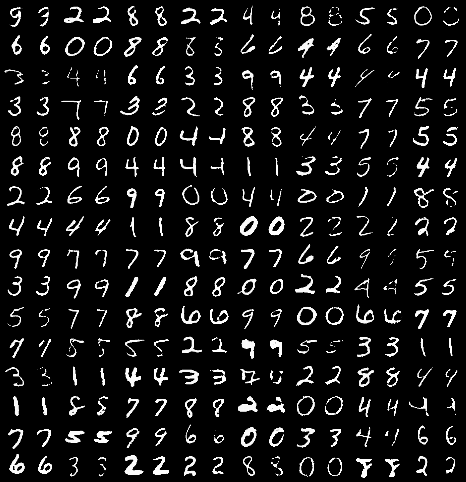 9 3 2 2 8 8 2 2 4 4 8 8 5 5 0 0
6 6 0 0 8 8 8 3 6 6 4 4 6 6 7 7
3 3 4 4 6 6 3 3 9 9 4 4 4 4 4 4
3 3 7 7 3 3 2 2 8 8 3 3 7 7 5 5
8 8 8 8 0 0 4 4 8 8 4 4 7 7 5 5
8 8 9 9 4 4 4 4 1 1 3 3 5 5 4 4
2 2 6 6 9 9 0 0 4 4 0 0 1 1 8 8
4 4 4 4 1 1 8 8 0 0 2 2 2 2 2 2
9 9 7 7 7 7 9 9 7 7 6 6 9 5 9
3 3 9 9 1 1 8 8 0 0 2 2 4 4 5 5
5 5 7 7 8 8 6 6 9 9 0 0 6 6 7 7
7 7 5 5 5 5 2 2 9 9 5 5 3 3 1 1
3 3 1 1 4 4 3 3 0 2 2 8 8 9 9
1 1 8 8 7 7 8 8 2 2 0 0 4 4 4
7 7 5 5 9 9 6 6 0 0 3 3 4 4 6 6
6 6 3 3 2 2 2 2 8 8 0 0 8 8 2 2